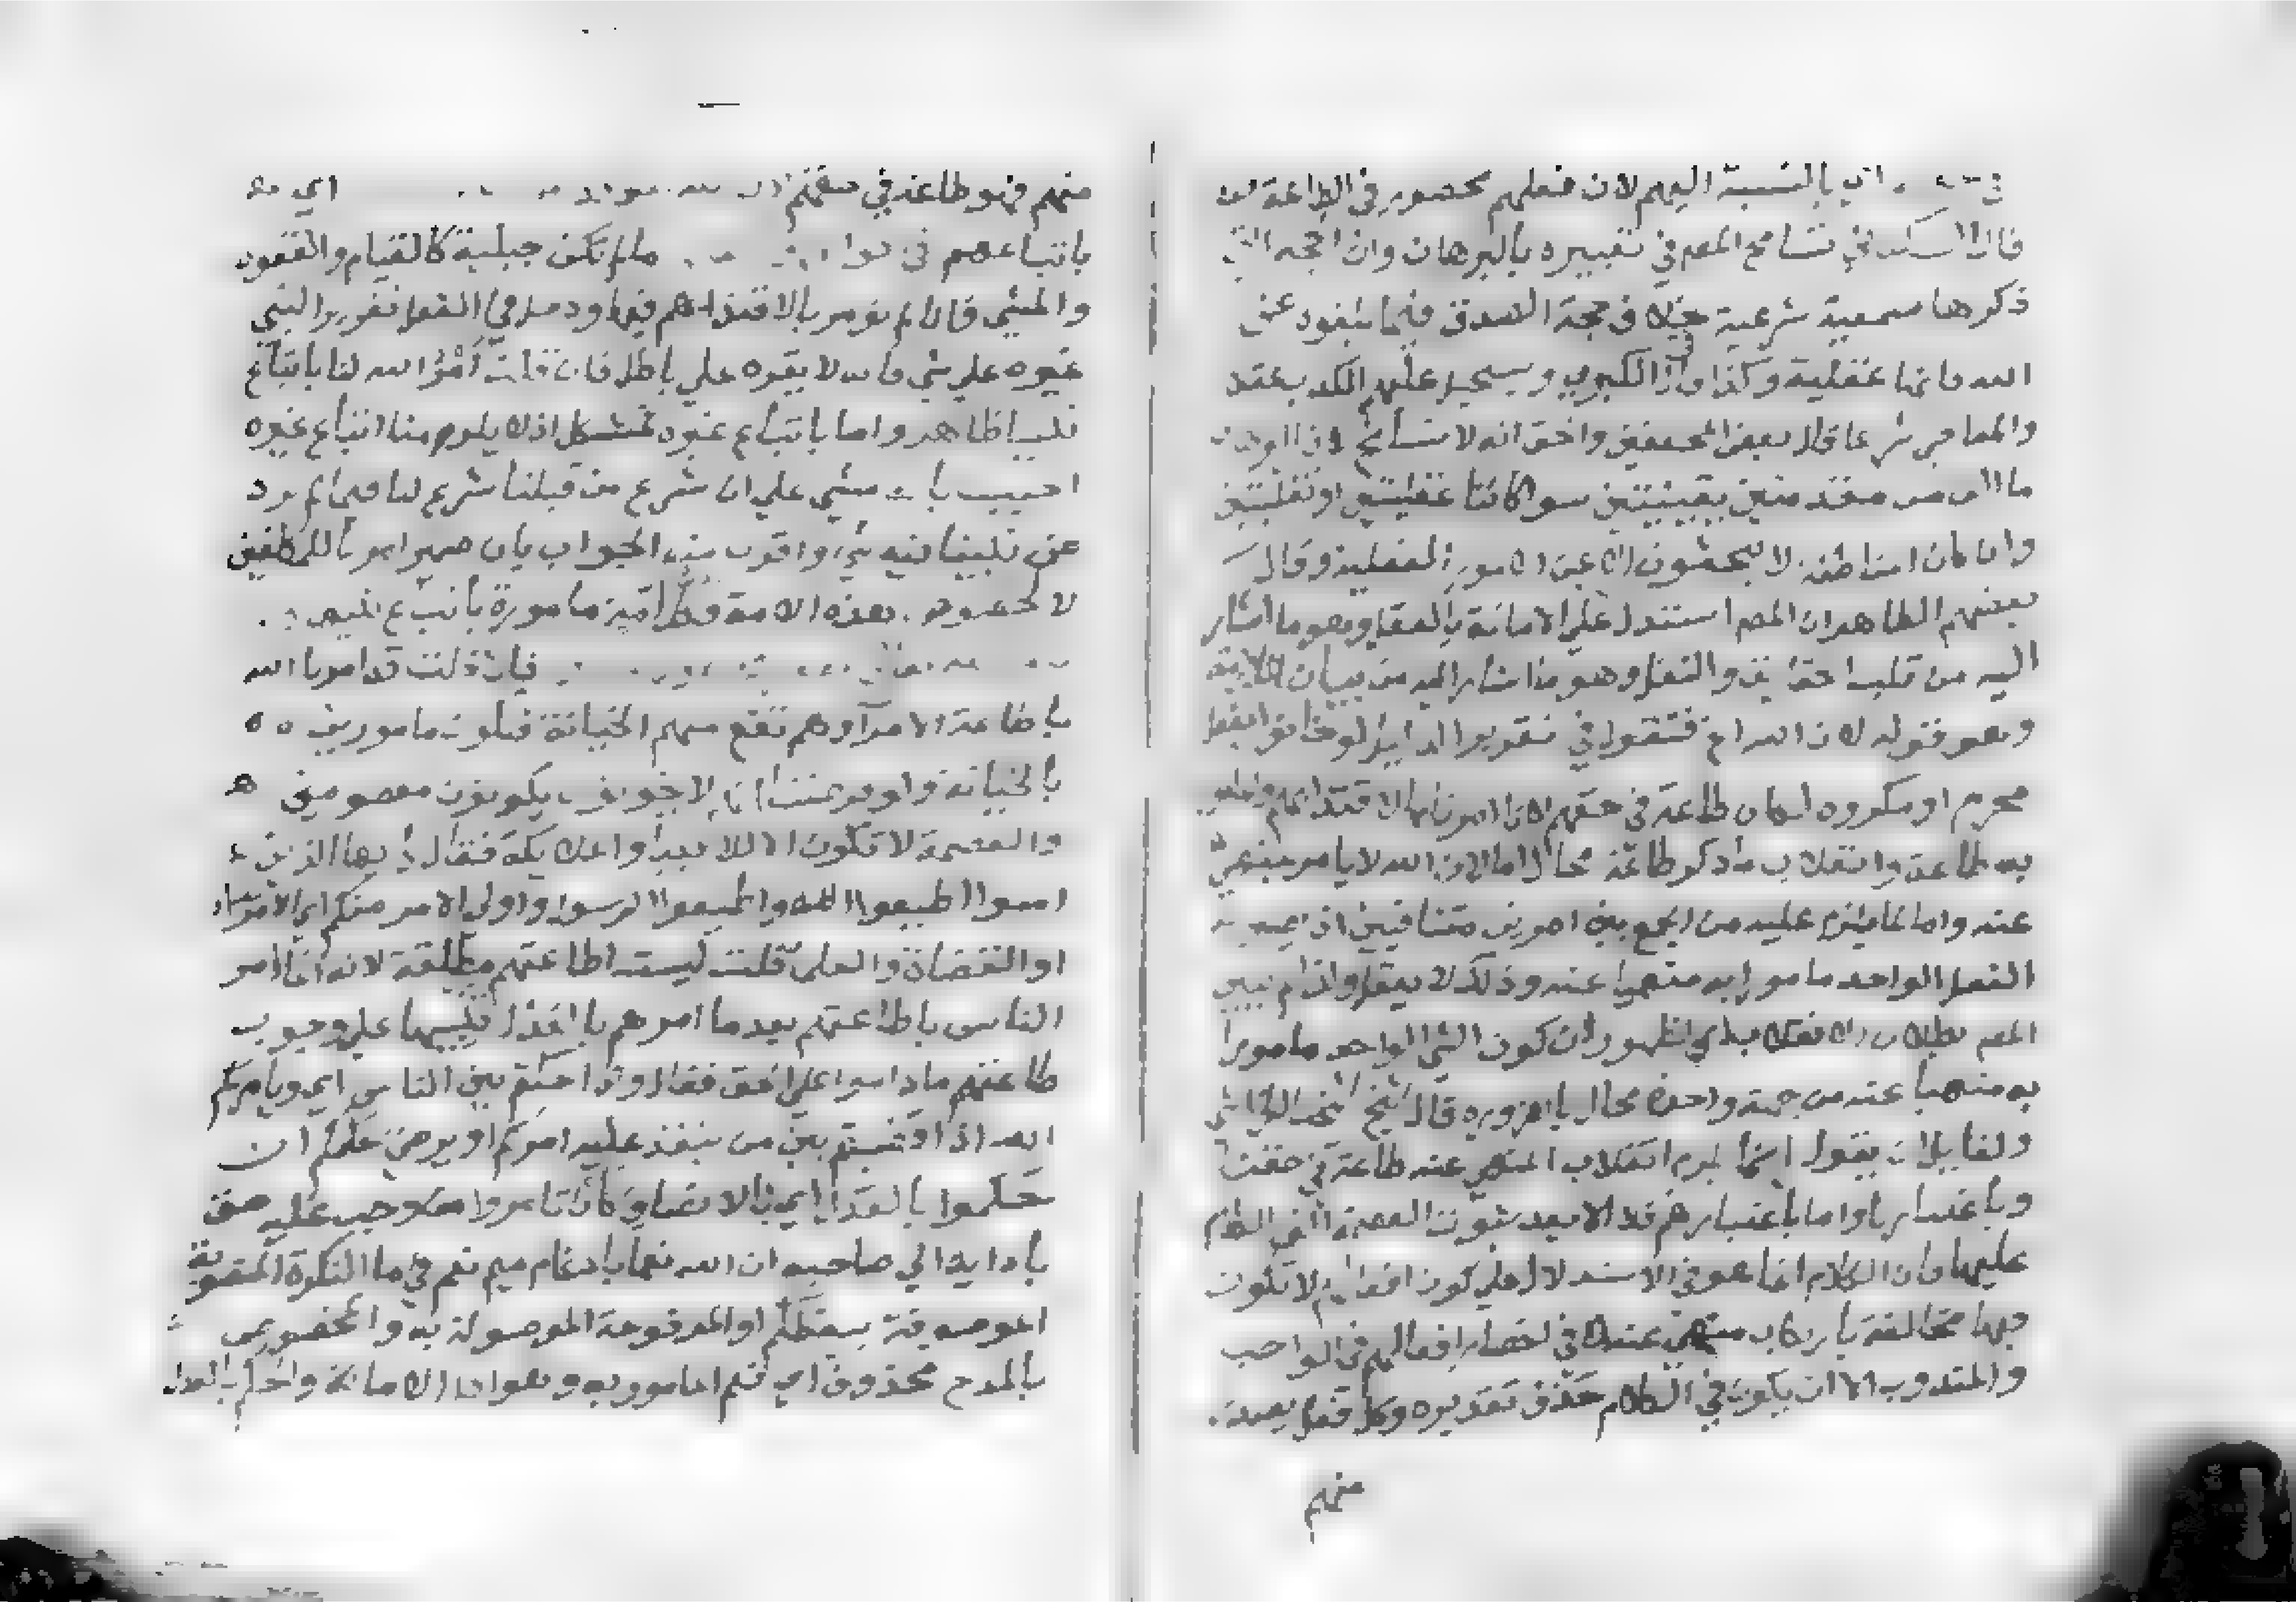 اي بالنسبة اليهم لان فعلهم محصور في الطاعة
قال تسامح المص في تعبيره بالبرهان وان الحجة التي
ذكرها سمعية شرعية بخلاف حجة الصدق فيما يبلغوه عن
الله فانها عقلية وكذا
والمعاصي شرعا قال بعض المحققين والحق انه لا تسامح لان البرهان
ما من مقدمتين يقينيتين سواكانتا عقليتين او نقليتين
وان كان المناطقة لا يبحثون الا عن الامور العقلية وقال
بعضهم الظاهر ان المص استدل على الامانة بالعقل وهو ما اشار
اليه من قلب الحقايق والنقل وهو ما اشار اليه من بيان الملازمة
وهو قوله لان الله الخ فتقول في تقرير الدليل لو خانوا بفعل
محرم او مكروه لكان طاعة في حقهم لانا امرنا بالاقتدا بهم
به طاعة وانقلاب ما ذكر طاعة محال اما الان الله لا يامر بمنهي
عنه واما لما يلزم عليه من الجمع بين امرين متنافيين اذ يصير
الفعل الواحد مامورا به منهيا عنه وذلك لا يعقل واذا لم يبين
المص بطلان الانقلاب لظهوره ان كون الشي الواحد مامورا
به منهيا عنه من جهة واحدة محال بالضرورة قال الشيخ
ولقايل ان يقول انما لزم انقلاب المنهي عنه طاعة في حقنا
وباعتبارنا واما باعتبارهم فلا الا بعد ثبوت العصمة التي الكلام
عليها فان الكلام انما هو في الاستدلال على كون افعالهم لا تكون
فيها مخالفة بارتكاب منهي عنه لا في انحصار افعالهم في الواجب
والمندوب الا ان يكون في الكلام حذف تقديره وكل فعل يصدر
منهم
منهم فهو طاعة في حقهم اي
باتباعهم في مالم تكن جبلية كالقيام والقعود
والمشي فانا لم نومر بالاقتدا بهم فيها ودخل في الفعل تقرير النبي
غيره على شي فانه لا يقره على باطل فان قلت امر الله لنا باتباع
نبينا ظاهر واما باتباع غيره فمشكل اذ لا يلزمنا اتباع غيره
اجيب بانه مشي على ان شرع من قبلنا شرع لنا فيما لم يرد
عن نبينا فيه شي واقرب منه الجواب بان ضمير امر للمكلفين
لا لخصوص هذه الامة فكل امة مامورة باتباع نبيها
فان قلت قد امرنا الله
باطاعة الامرآ وهم تقع منهم الخيانة فنكون مامورين
بالخيانة يكونون معصومين
والعصمة لا تكون الا للانبيا والملايكة فقال يايها الذين
امنوا اطيعوا الله واطيعوا الرسول واولي الامر منكم اي الامرآ
او القضاة والعلما قلت ليست اطاعتهم مطلقة لانه انما امر
الناس باطاعتهم بعد ما امرهم بالعدل تنبيها على وجوب
طاعتهم ما داموا على الحق فقال واذا حكمتم بين الناس اي ويامركم
الله اذا قضيتم بين من ينفذ عليه امركم او يرضى بحكمكم ان
تحكموا بالعدل اي بالانصاف كان تامروا من وجب عليه حق
بادايه الى صاحبه ان الله نعما بادغام ميم نعم في ما النكرة المنصوبة
الموصوفة بيعظكم او المرفوعة الموصولة به والمخصوص
بالمدح محذوف اي نعم المامور به وهو ادا الامانة والحكم بالعدل